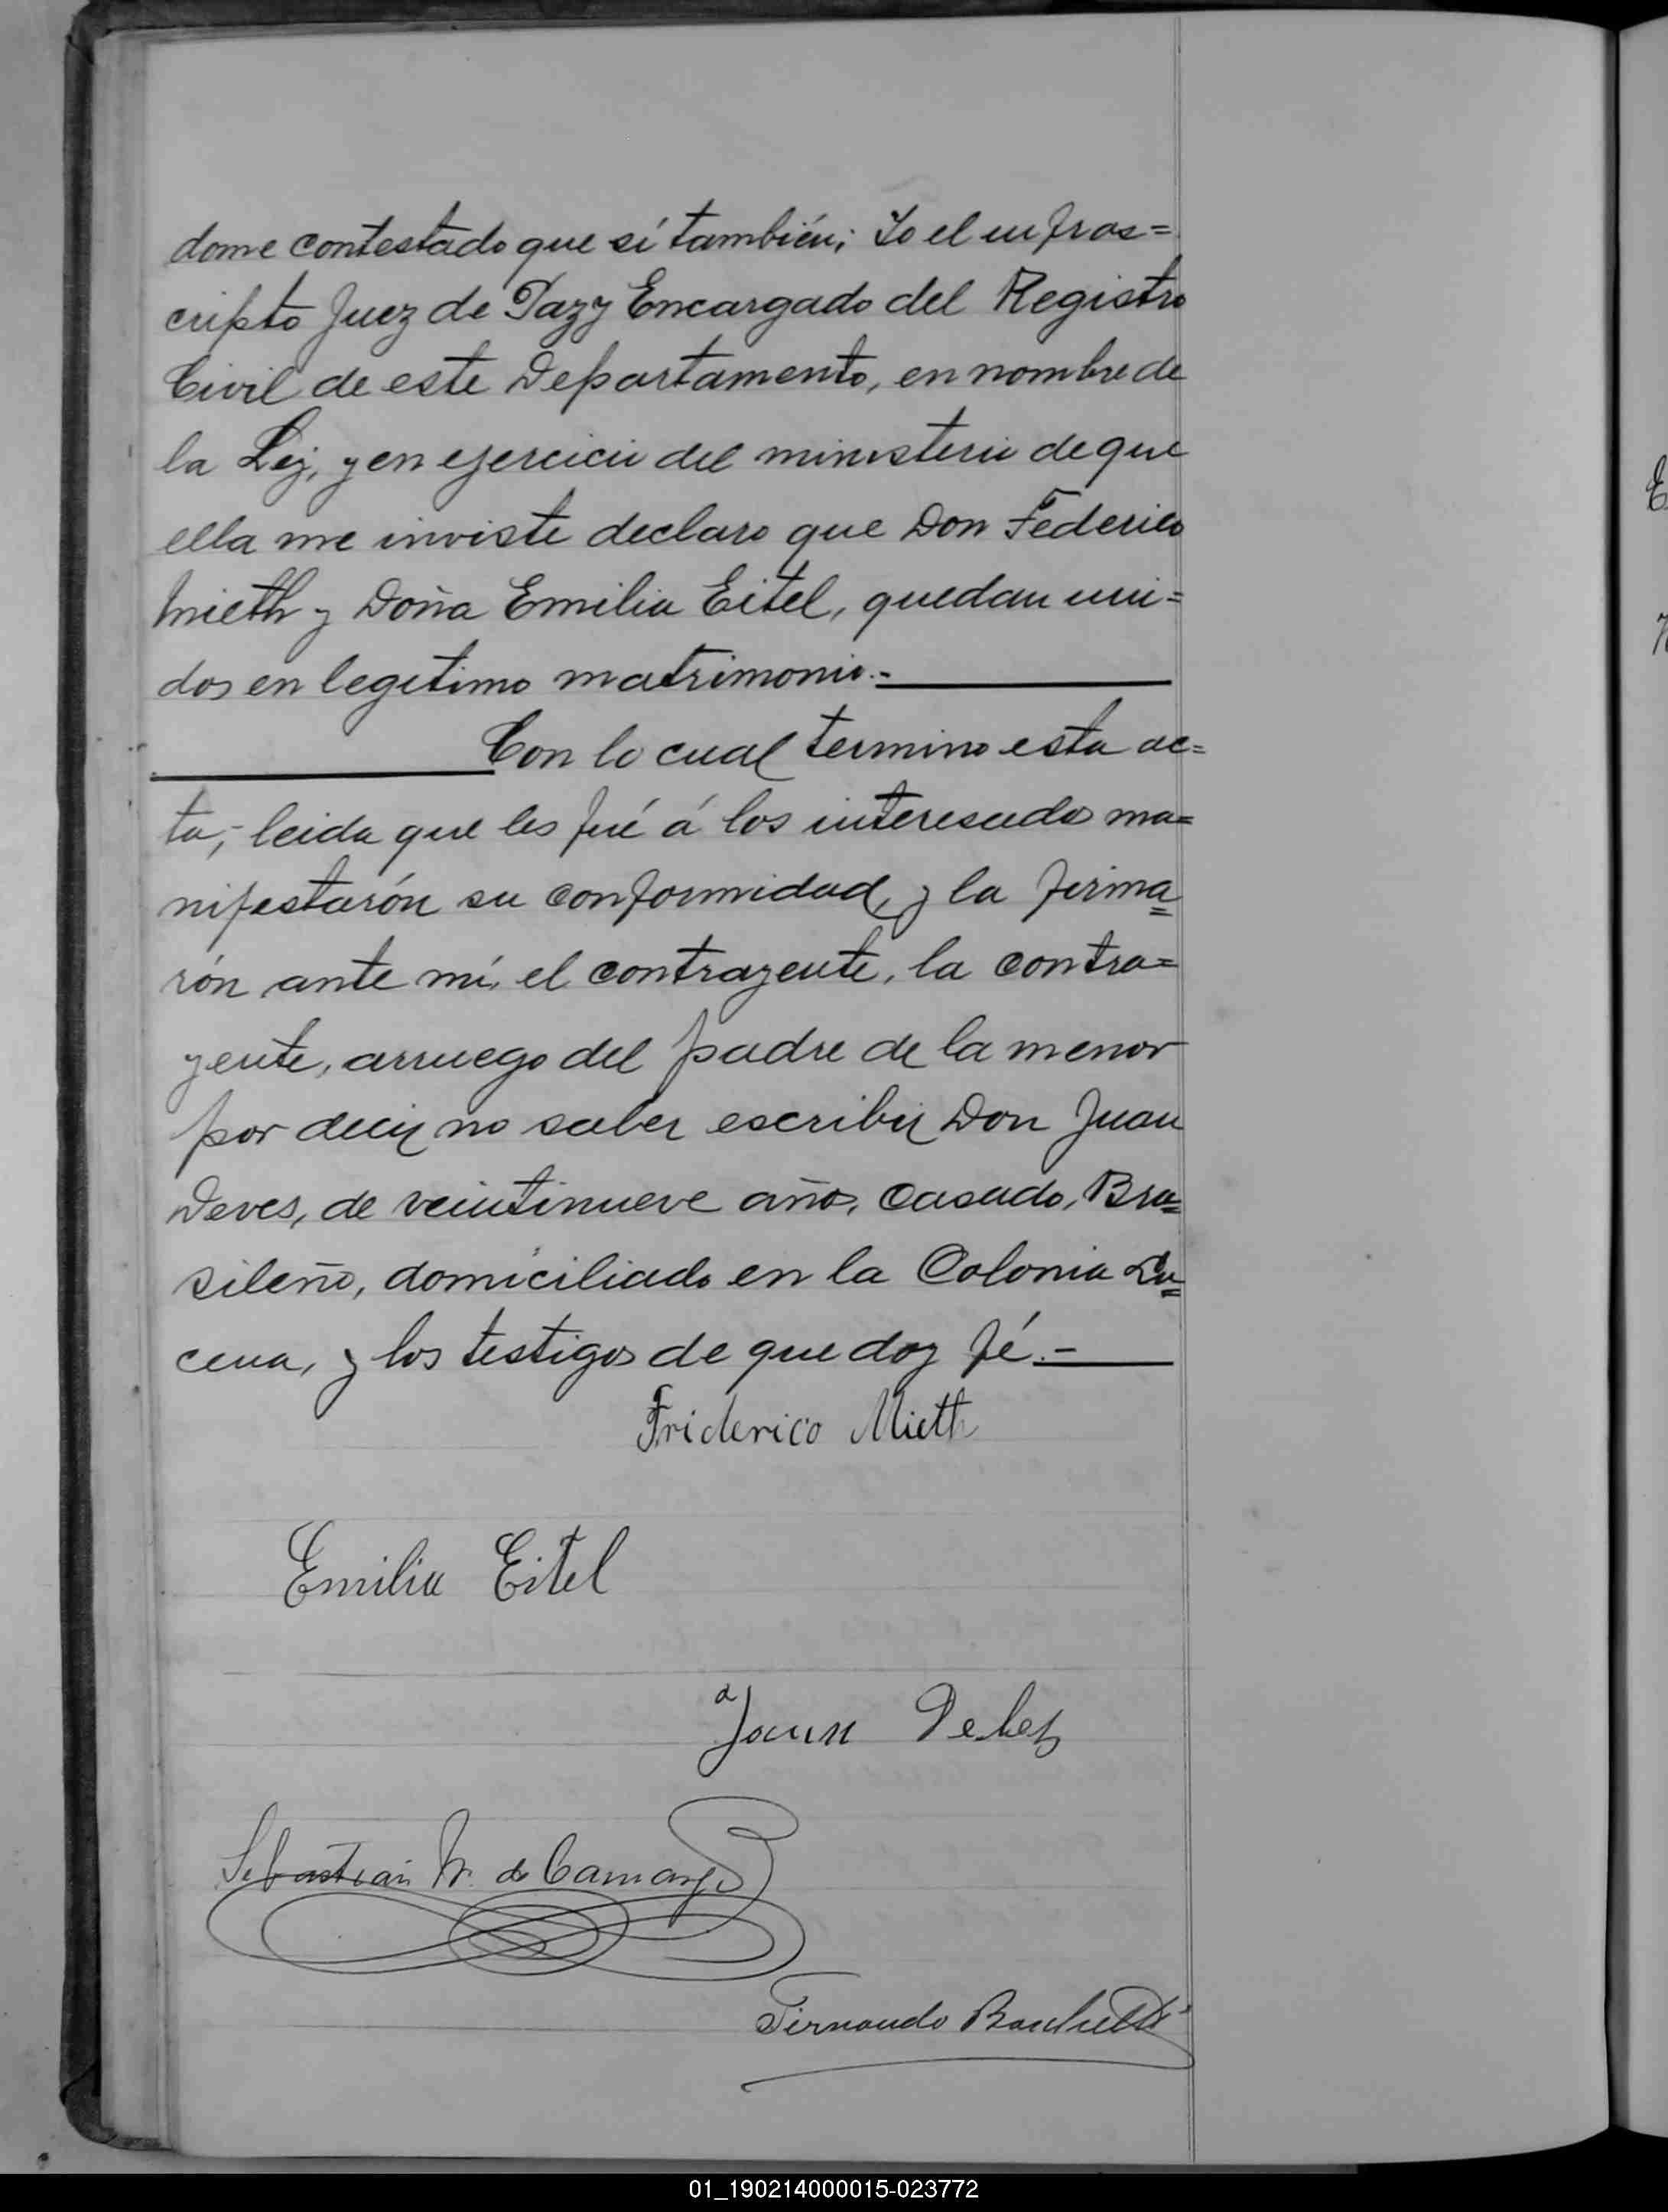 dome contestado que sí también; Yo el infras=
cripto Juez de Paz y Encargado del Registro
Civil de este Departamento, en nombre de
la Ley, y en ejercicio del ministerio de que
ella me inviste declaro que Don Federico
Mieth y Doña Emilia Eitel, quedan uni=
dos en legitimo matrimonio.-
Con lo cual termino esta ac=
ta,- leida que les fué á los interesados ma=
nifestarón su conformidad, y la firma=
rón ante mí, el contrayente, la contra=
yente, arruego del padre de la menor
por decir no saber escribir Don Juan
Deves, de veintinueve años, casado, Bra=
sileño, domiciliado en la Colonia Lu=
cena, y los testigos de que doy fé.-
Friderico Mieth
Emilia Eitel
Sebastian M. de Camargo
Fernando
01_190214000015-023772
E